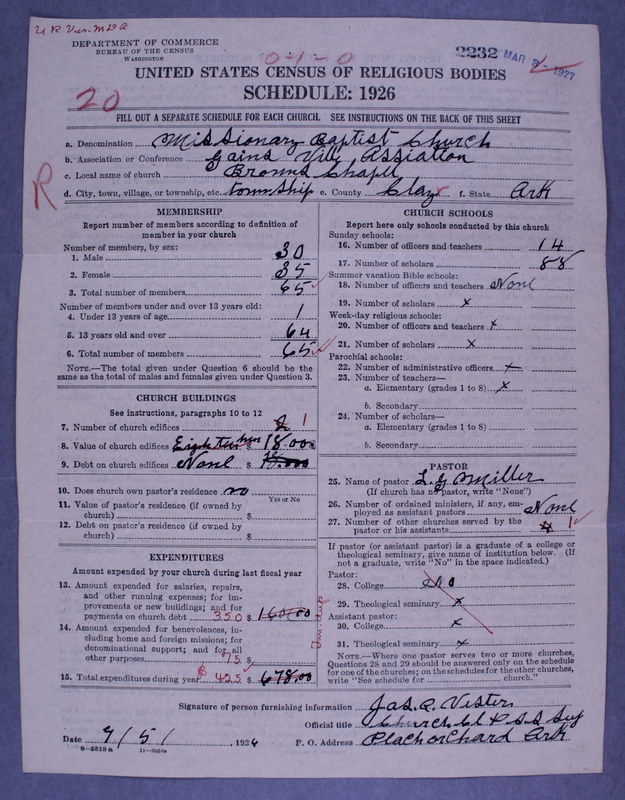 U R Ver. M D A
DEPARTMENT OF COMMERCE
BUREAU OF THE CENSUS
WASHINGTON
0-1-0
2232 MAR 2- 1927
UNITED STATES CENSUS OF RELIGIOUS BODIES
20
SCHEDULE: 1926
FILL OUT A SEPARATE SCHEDULE FOR EACH CHURCH. SEE INSTRUCTIONS ON THE BACK OF THIS SHEET
R
a. Denomination Missionary Baptist Church
b. Association or Conference Gains Vill Assiation
c. Local name of church Browns Chapll
d. City, town, village, or township, etc. township e. County Clay f. State Ark
MEMBERSHIP
Report number of members according to definition of
member in your church
Number of members, by sex:
1. Male 30
2. Female 35
3. Total number of members 65
Number of members under and over 13 years old:
4. Under 13 years of age 1
5. 13 years old and over 64
6. Total number of members 65
NOTE.—The total given under Question 6 should be
same as the total of males and females given under Question 3.
CHURCH BUILDINGS
See instructions, paragraphs 10 to 12
7. Number of church edifices 2 1
8. Value of church edifices Eighteen hun $ 18.00
9. Debt on church edifices None $
10. Does church own pastor's residence no
Yes or No
11. Value of pastor's residence (if owned by
church) $
12. Debt on pastor's residence (if owned by
church) $
EXPENDITURES
Amount expended by your church during last fiscal year
13. Amount expended for salaries, repairs,
and other running expenses; for im-
provements or new buildings; and for
payments on church debt 350 $ 160.00
14. Amount expended for benevolences, in-
cluding home and foreign missions; for
denominational support; and for all
other purposes 75 $
15. Total expenditures during year $ 425 $ 678.00
CHURCH SCHOOLS
Report here only schools conducted by this church
Sunday schools:
16. Number of officers and teachers 14
17. Number of scholars 88
Summer vacation Bible schools:
18. Number of officers and teachers None
19. Number of scholars x
Week-day religious schools:
20. Number of officers and teachers x
21. Number of scholars x
Parochial schools:
22. Number of administrative officers x
23. Number of teachers—
a. Elementary (grades 1 to 8) x
b. Secondary
24. Number of scholars—
a. Elementary (grades 1 to 8)
b. Secondary
PASTOR
25. Name of pastor L. G Miller
(If church has no pastor, write "None")
26. Number of ordained ministers, if any, em-
ployed as assistant pastors None
27. Number of other churches served by the
pastor or his assistants 4 1
If pastor (or assistant pastor) is a graduate of a college or
theological seminary, give name of institution below. (If
not a graduate, write "No" in the space indicated.)
Pastor:
28. College No
29. Theological seminary x
Assistant pastor:
30. College x
31. Theological seminary x
NOTE.—Where one pastor serves two or more churches,
Questions 28 and 29 should be answered only on the schedule
for one of the churches; on the schedules for the other churches,
write "See schedule for church."
Signature of person furnishing information Jas. R. Vester
Official title Church Cl & S S
Date 9/5/, 1926 P. O. Address Peach orchard Ark
8-5518 a